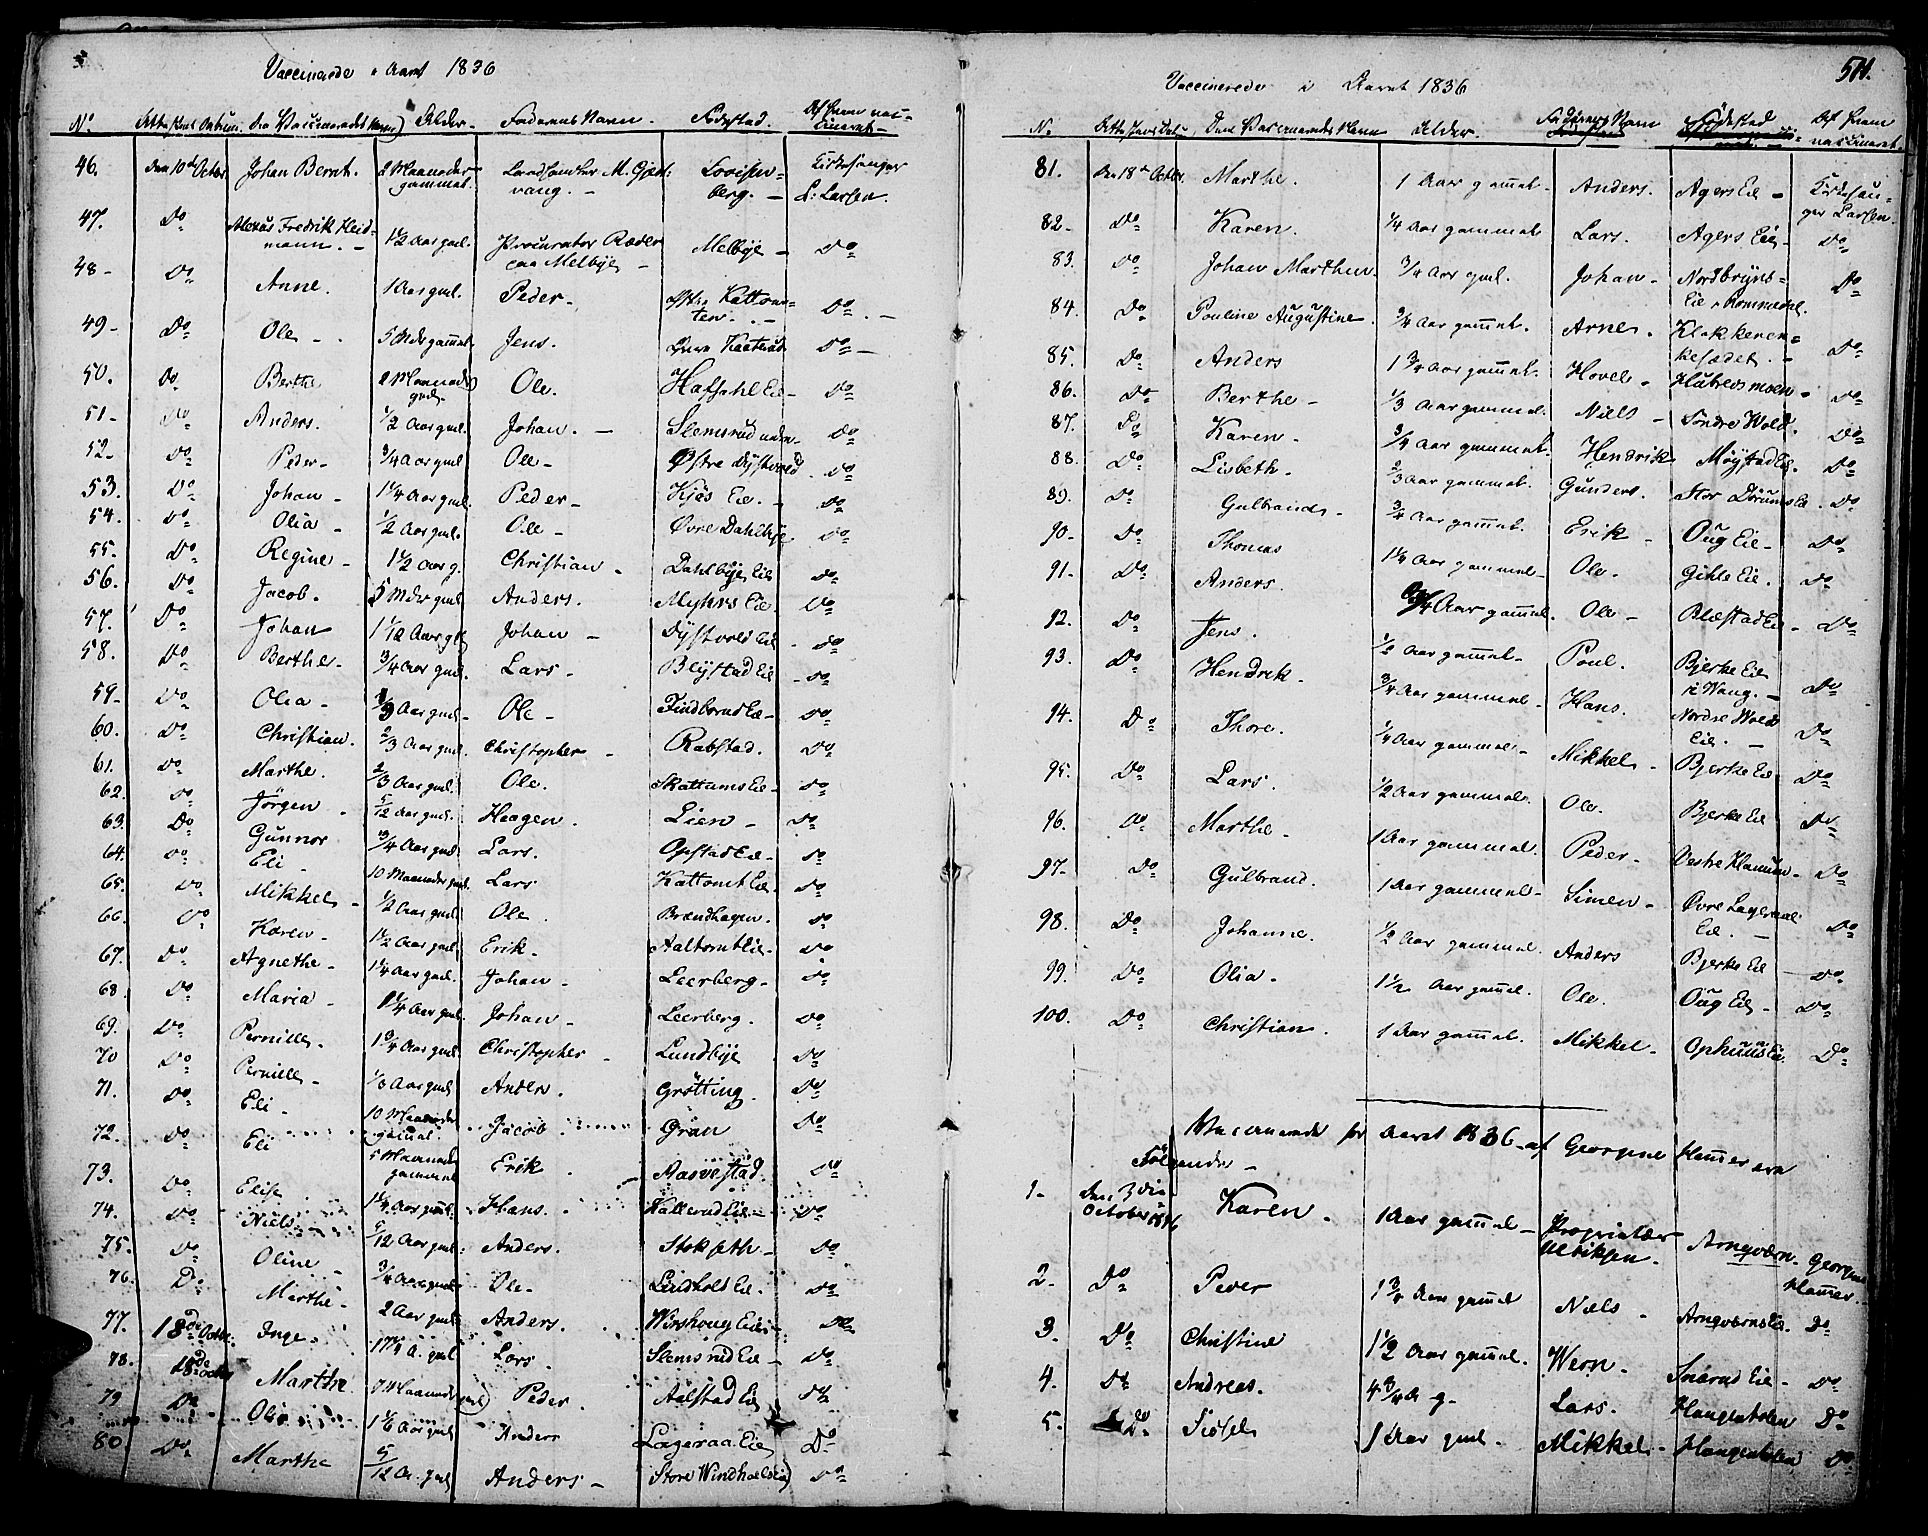 Vaccinerede i Aaret 1836
No. Attestens Datum. Den Vaccineredes Navn Alder. Faderens Navn. Fødestad. Af hvem vaccineret.
46. Den 10de Octbr. Johan Bernt. 2 Maaneder gammel. Landhandler M. Gjest: vang. Lovisenberg. Kirkesanger L: Larsen.
47. Do Fredrik Heidmann. 1 1/2 Aar gml. Procurator Ræder paa Melbye Melbye Do
48 Do Anne. 1 Aar gml. Peder. Do
49 Do Ole 5 Mdr gammel Jens. Do
50. Do Berthe 2 Maaneder gml. Ole. Eie Do
51 Do Anders. 1/2 Aar gml. Johan. Slemsrud Do
52 Do Peder 3/4 Aar gml Ole Østre Dystvold Do
53. Do Johan 1 1/4 Aar gml Peder Kjøs Eie. Do
54. Do Olia 1/2 Aar gml. Ole Øvre Dahlbye Do
55. Do Regine 1 1/2 Aar g. Christian Dahlbye Eie Do
56. Do Jacob. 5 Mdr gml Anders. Myhrs Eie Do
57. Do Johan 1 1/12 Aar gl Johan Dystvold Eie Do
58. Do Berthe 3/4 Aar gml. Lars Blystad Eie Do
59 Do Olia Aar gml. Ole Eie Do
60. Do Christian. 2/3 Aar gml. Christopher Rabstad. Do
61. Do Marthe. 2/3 Aar gml. Ole. Skattums Eie Do
62. Do Jørgen 5/12 Aar gml. Haagen. Lien Do
63. Do Gunnor 3/4 Aar gml. Lars. Opstad Eie Do
64. Do Eli 10 Maaneder gml. Lars Eie Do
65. Do Mikkel 1/2 Aar gml. Ole. Brændhagen. Do
66. Do Karen 1 1/2 Aar gml. Erik. Eie Do
67. Do Agnethe 1 1/4 Aar gml. Johan Leerberg Do
68. Do Maria 1 1/4 Aar gml. Johan Leerberg. Do
69. Do Pernille 1 3/4 Aar gml Christopher Lundbye Do
70 Do Pernille 1/3 Aar gml Anders Grøtting Do
71. Do Eli 10 Maaneder gammel. Jacob Gran Do
72. Do Eli 5 Maaneder gammel Erik Aasvestad. Do
73. Do Elise 1 1/4 Aar gaml. Hans. Eie Do
74. Do Niels 5/12 Aar gml. Anders. Stokseth Do
75. Do Oline 3/4 Aar gml Ole. Lindholt Eie. Do
76. Do Marthe. 2 Aar gml Anders. Eie Do
77. 18de Octbr. Inge. A. gml Lars. Slemsrud Eie Do
78. 18de Octbr Marthe 7 Maaneder gml Peder. Aalstad Eie Do
79 Do Olia 1 1/6 Aar gml Anders Lageraa Eie Do
80. Do Marthe 5/12 A. gml Anders Store Do
511.
Vaccinerede i Aaret 1836
No. Den Vaccineredes Navn Alder. Faderens Navn Fødestad Af hvem vaccineret.
81. Den 18de Octbr. Marthe. 1 Aar gammel. Anders. Agers Eie Kirkesanger Larsen.
82 Do Karen. 1/4 Aar gammel Lars. Agers Eie Do
83. Do Johan Marthin. 3/4 Aar gml. Johan Nordbryns Eie i Rommedal. Do
84. Do Pouline Augustine. 3/4 Aar gammel. Arne. Klokkerenkesædet. Do
85. Do Anders 1 3/4 Aar gammel. Hovel. Do
86. Do Berthe 1/3 Aar gammel. Niels Søndre Wold. Do
87. Do Karen 3/4 Aar gammel. Hendrik Møystad Eie. Do
88. Do Lisbeth. 2/3 Aar gammel. Gunders. Stor Do
89. Do Gulbrands 3/4 Aar gammel. Erik Oug Eie Do
90. Do Thomas 1 1/4 Aar gammel Ole. Gihle Eie. Do
91. Do Anders. 3/4 Aar gammel. Ole Blæstad Eie Do
92. Do Jens. 1/2 Aar gammel Poul. Bjerke Eie i Wang. Do
93. Do Hendrik 3/4 Aar gammel Hans. Nordre Wold Eie. Do
94. Do Thore. 1/4 Aar gammel Mikkel Bjerke Eie Do
95. Do Lars. 1/2 Aar gammel. Ole. Bjerke Eie Do
96. Do Marthe 1 Aar gammel. Peder Vestre Do
97. Do Gulbrand. 1 Aar gammel Simen Øvre Lageraae Eie. Do
98. Do Johanne. 1/2 Aar gammel Anders Bjerke Eie Do
99. Do Olia. 1 1/2 Aar gammel. Ole. Oug Eie Do
100. Do Christian. 1 Aar gammel. Mikkel Ophuus Eie Do
Vaccinerede for Aaret 1836 af Georgine Hammer ere
Følgende
1. Den 3die October 1836 Karen. 1 Aar gammel Proprietær Arnqværn. Georgine Hammer.
2. Do Peder 1 3/4 Aar gammel Niels. Arnqværns Eie. Do
3. Do Christine 1 1/2 Aar gammel. Wern. Snarud Eie Do
4. Do Andreas. 4 3/4 A g. Lars. Do
5. Do 1 Aar gml. Mikkel Do